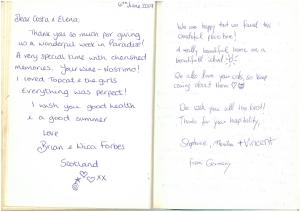 6th June 2019
Dear Costa & Elena,
Thank you so much for giving
us a wonderful week in Paradise!
A very special time with cherished
memories. Your wine - Nostrimo!
I loved Topcat & the girls
Everything was perfect!
I wish you good health
& a good summer
Love
Brian & Nicca Forbes
Scotland
xx
We are happy that we found this
beautiful place here!
A really beautiful home on a
beautiful island
We also love your cats, so keep
caring about them
We wish you all the best!
Thanks for your hospitality,
Stephanie, + Vincent
from Germany